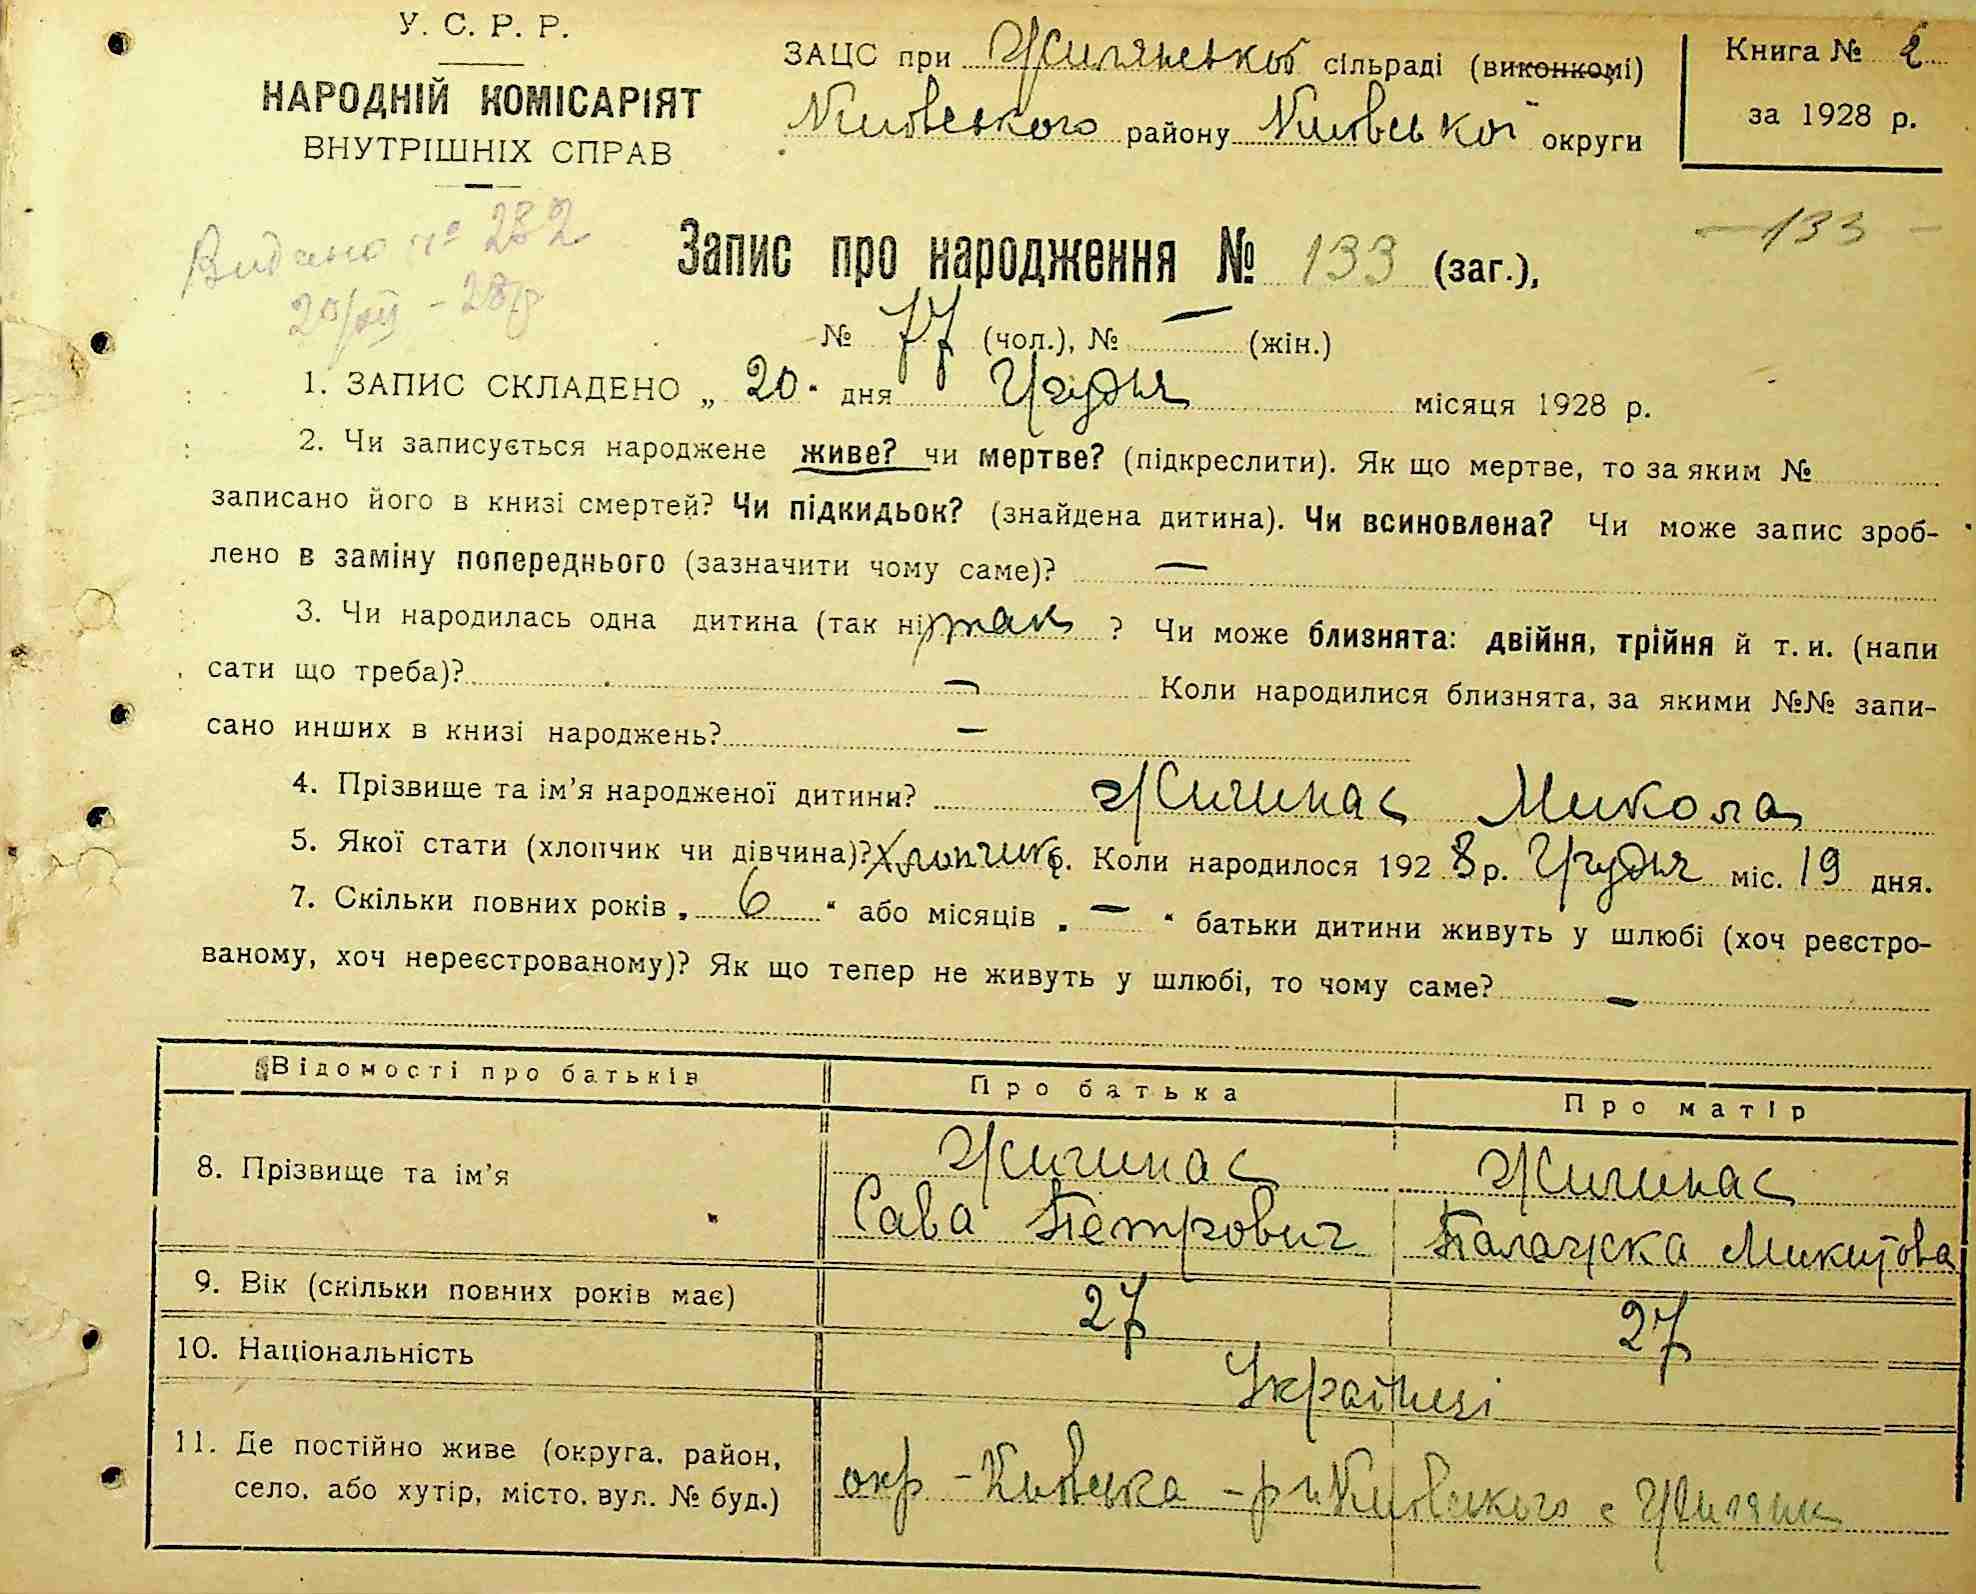 У. С. Р. Р.
НАРОДНІЙ КОМІСАРІЯТ
ВНУТРІШНІХ СПРАВ
ЗАЦС при Жилянської сільраді (виконкомі)
Київського району Київської округи
Книга № 2
за 1928 р.
Видано № 282
20/XII - 28р
Запис про народження № 133 (заг.),
— 133 —
№ 77 (чол.), № — (жін.)
1. ЗАПИС СКЛАДЕНО „ 20 " дня Грудня місяця 1928 р.
2. Чи записується народжене живе? чи мертве? (підкреслити). Як що мертве, то за яким №
записано його в книзі смертей? Чи підкидьок? (знайдена дитина). Чи всиновлена? Чи може запис зроб-
лено в заміну попереднього (зазначити чому саме)? —
3. Чи народилась одна дитина (так ні) так ? Чи може близнята: двійня, трійня й т. и. (напи
сати що треба)? — Коли народилися близнята, за якими №№ запи-
сано инших в книзі народжень? —
4. Прізвище та ім'я народженої дитини? Жигинас Микола
5. Якої стати (хлопчик чи дівчина)? Хлопчик 6. Коли народилося 1928 р. Грудня міс. 19 дня.
7. Скільки повних років „ 6 " або місяців „ — " батьки дитини живуть у шлюбі (хоч реєстро-
ваному, хоч нереєстрованому)? Як що тепер не живуть у шлюбі, то чому саме? —
Відомості про батьків Про батька Про матір
8. Прізвище та ім'я Жигинас Жигинас
Сава Петрович Палажка Микитова
9. Вік (скільки повних років має) 27 27
10. Національність Українці
11. Де постійно живе (округа, район,
село, або хутір, місто, вул. № буд.) окр - Київська - р н Київського с Жиляни